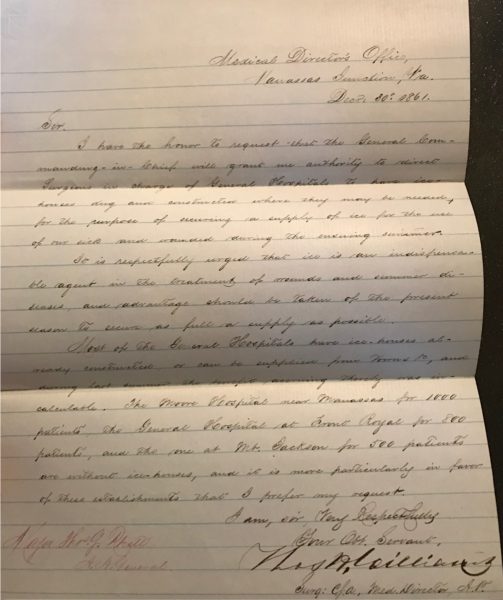 Medical Director's Office,
Manassas Junction, Va.
Decr. 30th. 1861.
Sir.
I have the honor to request that the General Com-
manding-in-Chief will grant me authority to direct
Surgeons in charge of General Hospitals to have ice-
houses dug and constructed where they may be needed,
for the purpose of securing a supply of ice for the use
of our sick and wounded during the ensuing summer.
It is respectfully urged that ice is an indispensa-
ble agent in the treatment of wounds and summer di-
seases, and advantage should be taken of the present
season to secure as full a supply as possible.
Most of the General Hospitals have ice-houses al-
ready constructed, or can be supplied from towns &c, and
during last summer the profit accruing thereby was in-
calculable. The Moore Hospital near Manassas for 1000
patients, the General Hospital at Front Royal for 500
patients, and the one at Mt. Jackson for 500 patients
are without ice-houses, and it is more particularly in favor
of these establishments that I prefer my request.
I am, sir, Very Respectfully
Your Obt. Servant,
Thos H. Williams
Surg: C.S.A., Med. Director, A.P.
Major Tho G. Rhett
A. A. General